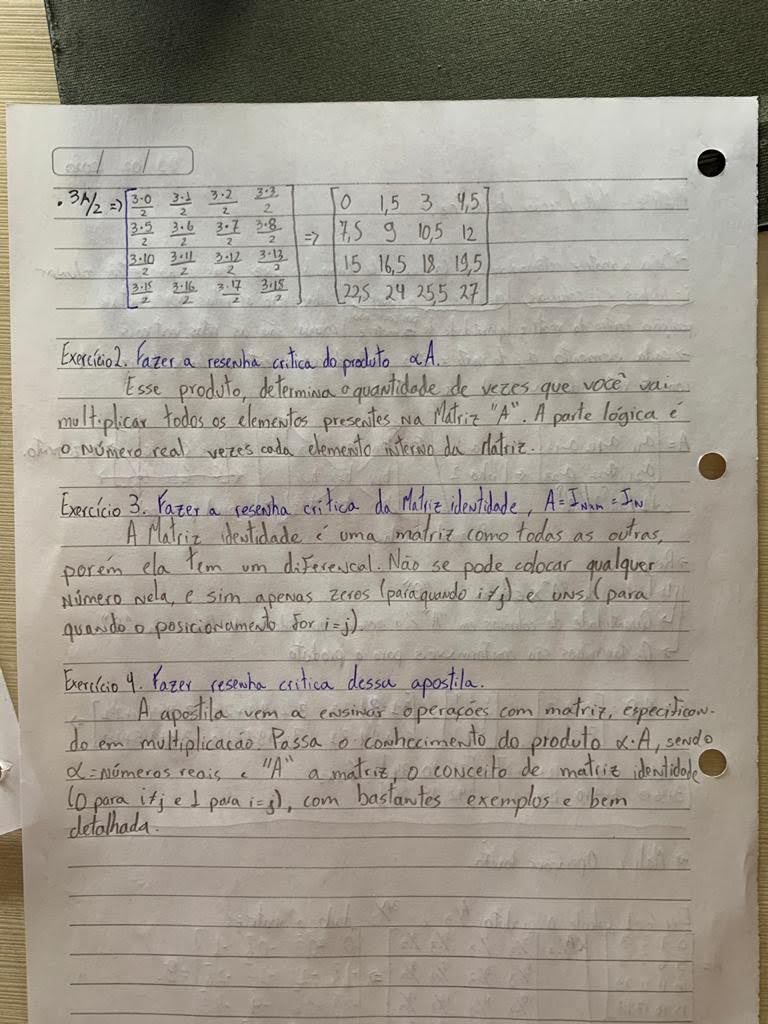 / /
• 3A/2 => [3·0/2 3·1/2 3·2/2 3·3/2] => [0 1,5 3 4,5]
[3·5/2 3·6/2 3·7/2 3·8/2] [7,5 9 10,5 12]
[3·10/2 3·11/2 3·12/2 3·13/2] [15 16,5 18 19,5]
[3·15/2 3·16/2 3·17/2 3·18/2] [22,5 24 25,5 27]
Exercício 2. Fazer a resenha critica do produto αA.
Esse produto, determina o quantidade de vezes que você vai
multiplicar todos os elementos presentes na Matriz "A". A parte lógica é
o número real vezes cada elemento interno da Matriz.
Exercício 3. Fazer a resenha critica da Matriz identidade, A = I_{nxn} = I_n
A Matriz identidade é uma matriz como todas as outras,
porém ela tem um diferencal. Não se pode colocar qualquer
número nela, e sim apenas zeros (para quando i≠j) e uns (para
quando o posicionamento for i=j).
Exercício 4. Fazer resenha critica dessa apostila.
A apostila vem a ensinar operações com matriz, especifican-
do em multiplicação. Passa o conhecimento do produto α·A, sendo
α = números reais e "A" a matriz, o conceito de matriz identidade
(0 para i≠j e 1 para i=j), com bastantes exemplos e bem
detalhada.